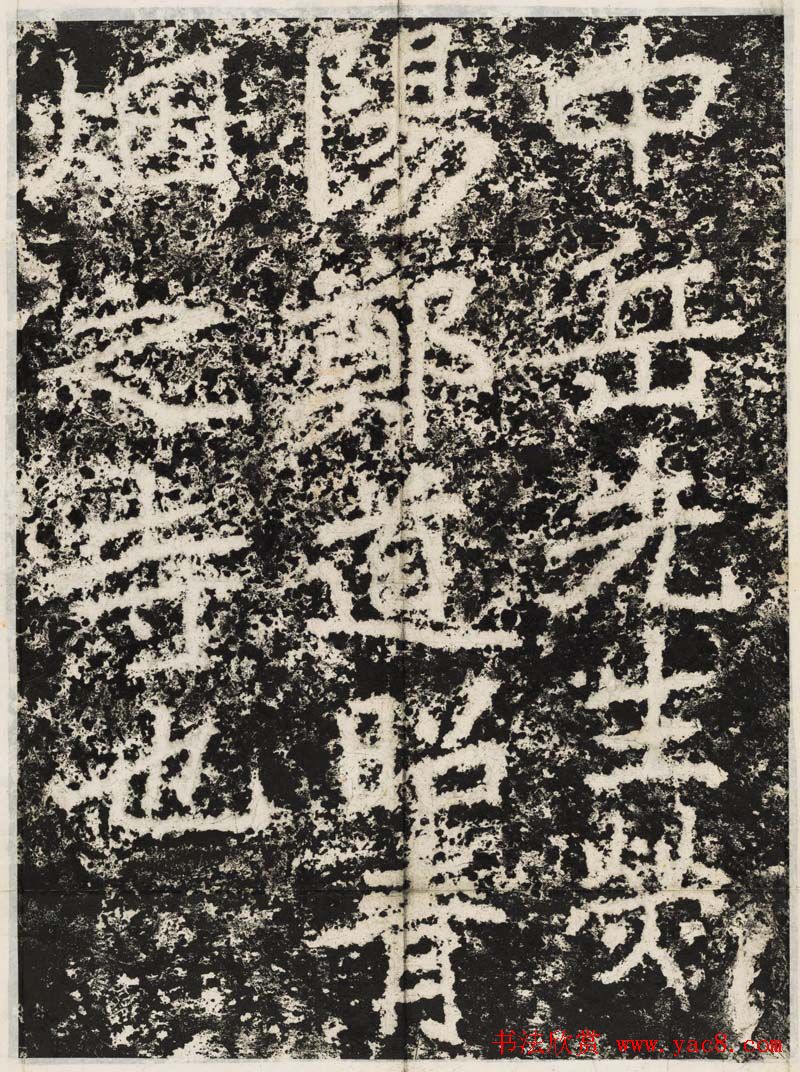 中岳先生熒
陽鄭道昭青
烟之寺也
书法欣赏 www.yac8.com